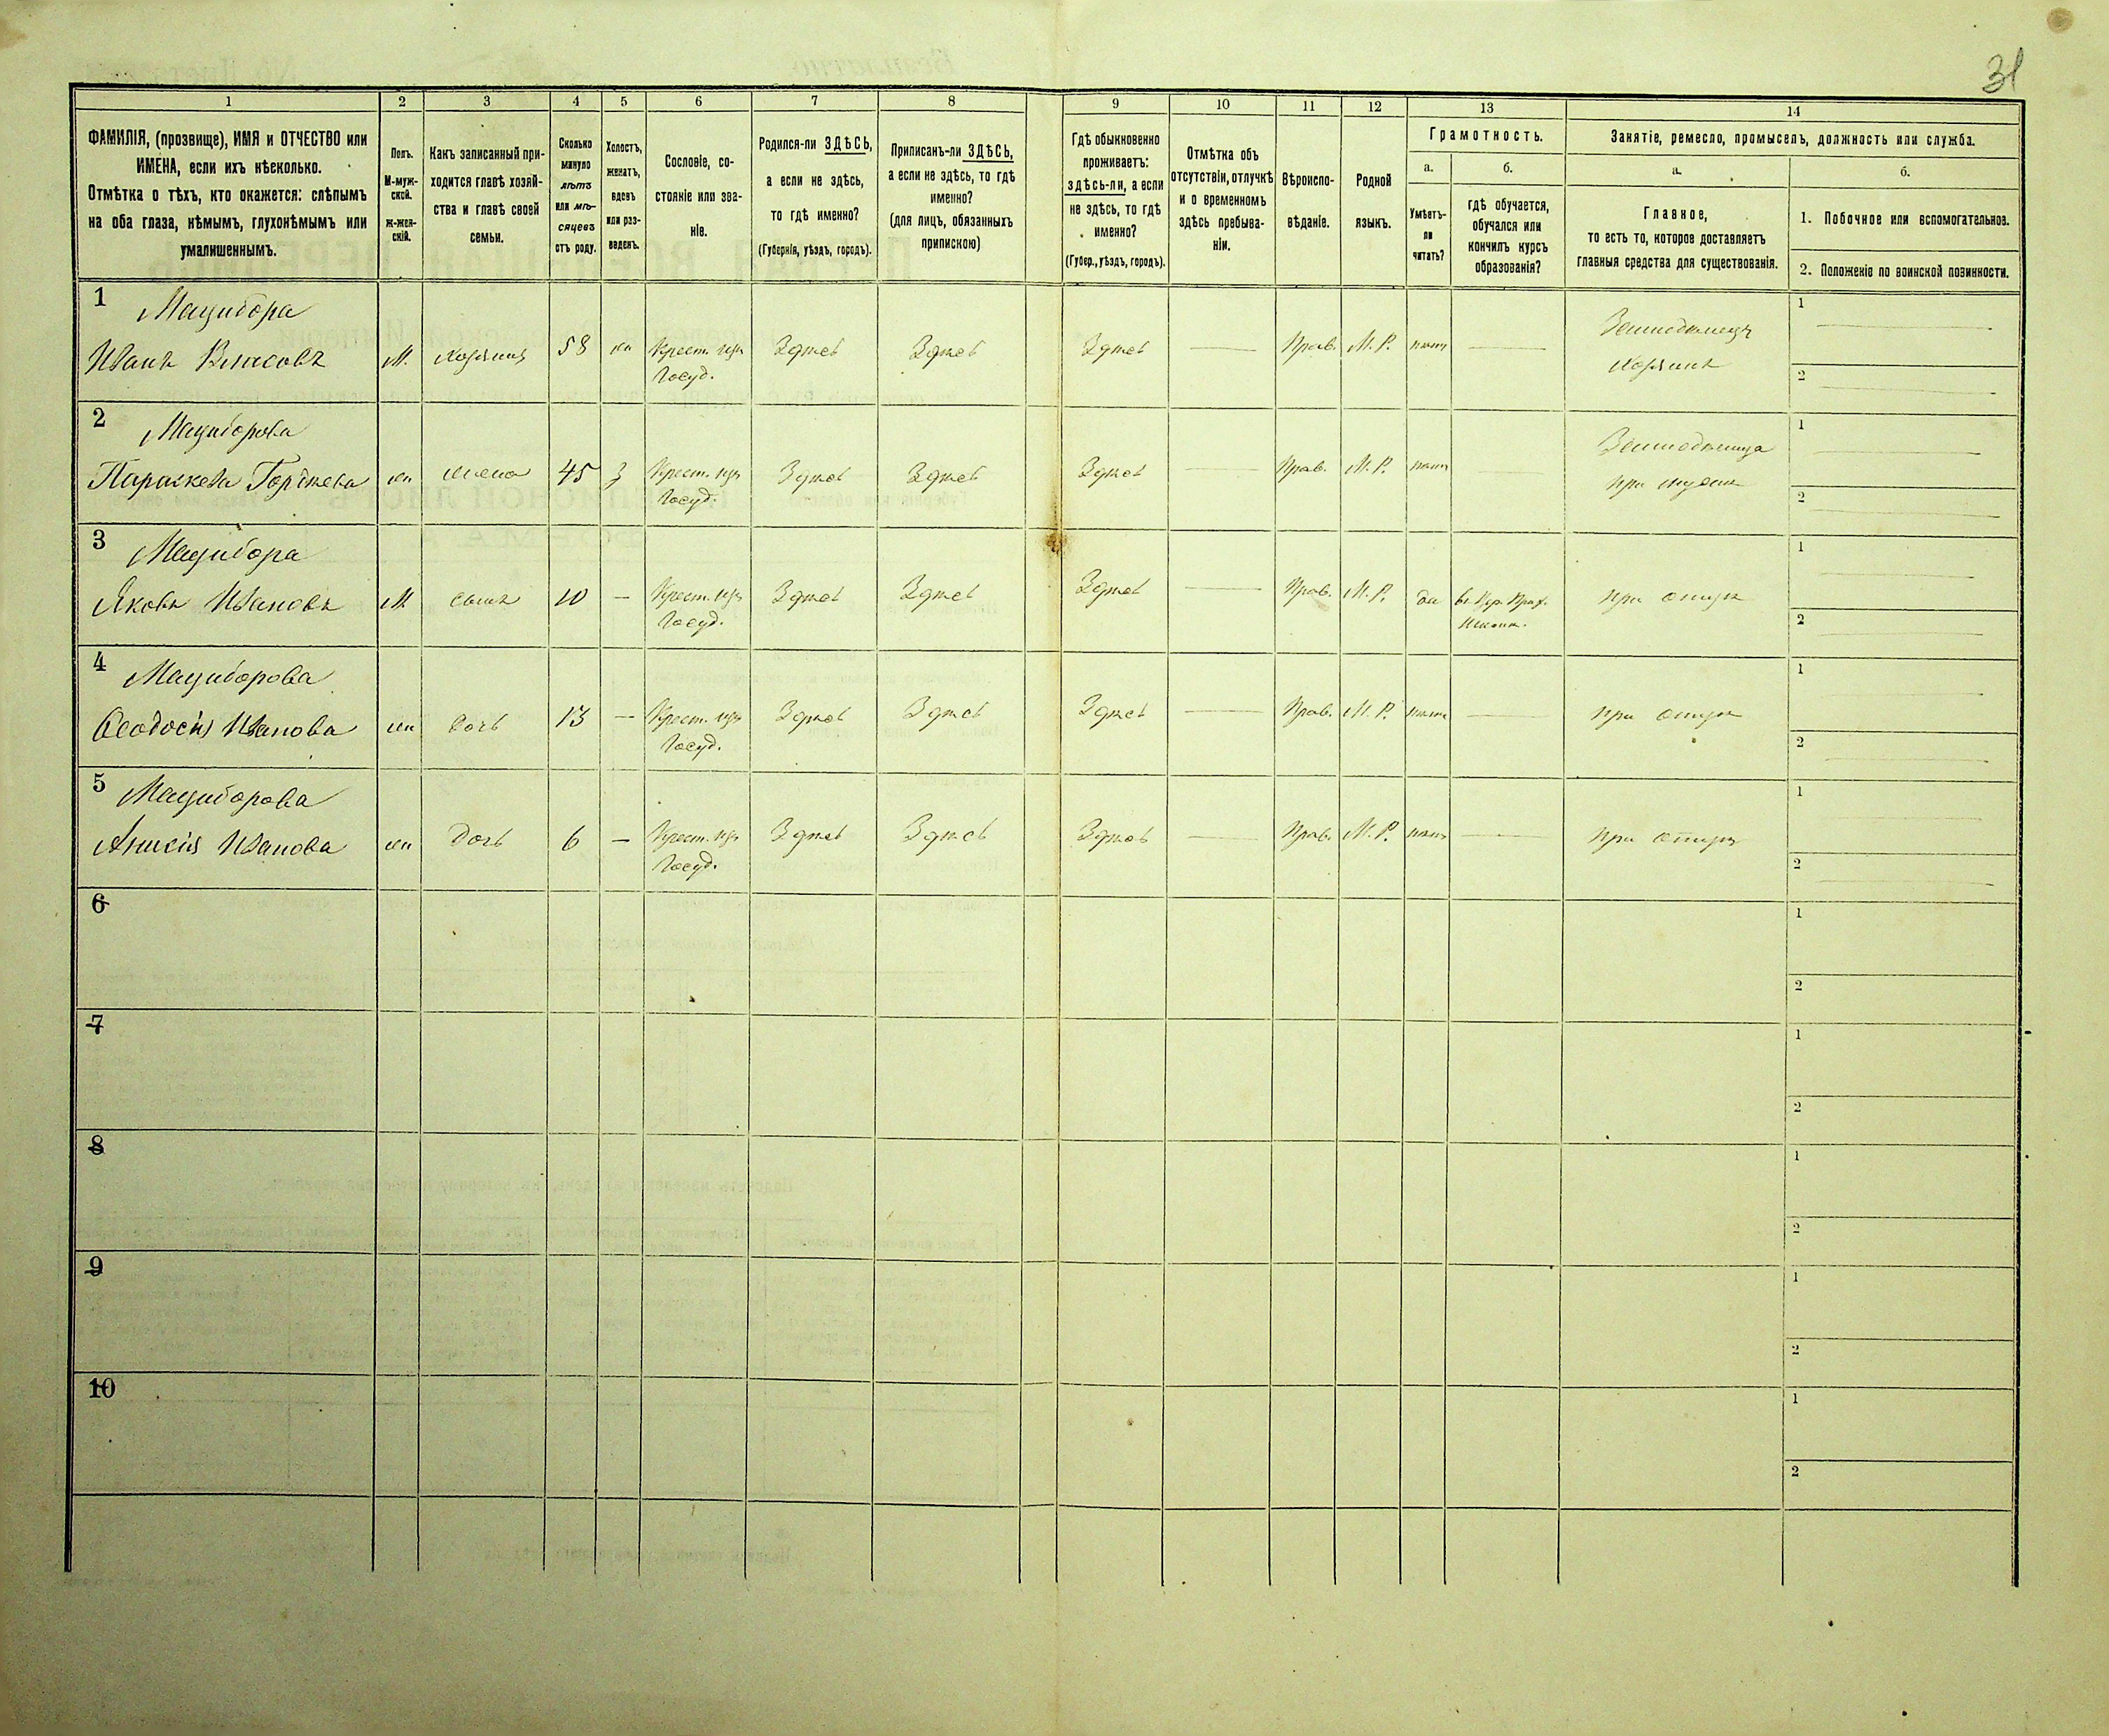 31
1 2 3 4 5 6 7 8 9 10 11 12 13 14
ФАМИЛІЯ, (прозвище), ИМЯ и ОТЧЕСТВО или
ИМЕНА, если ихъ нѣсколько.
Отмѣтка о тѣхъ, кто окажется: слѣпымъ
на оба глаза, нѣмымъ, глухонѣмымъ или
умалишеннымъ.
Полъ.
М-муж-
ской.
Ж-жен-
скій.
Какъ записанный при-
ходится главѣ хозяй-
ства и главѣ своей
семьи.
Сколько
минуло
лѣтъ
или мѣ-
сяцевъ
отъ роду.
Холостъ,
женатъ,
вдовъ
или раз-
веденъ.
Сословіе, со-
стояніе или зва-
ніе.
Родился-ли ЗДѢСЬ,
а если не здѣсь,
то гдѣ именно?
(Губернія, уѣздъ, городъ).
Приписанъ-ли ЗДѢСЬ,
а если не здѣсь, то гдѣ
именно?
(для лицъ, обязанныхъ
припискою)
Гдѣ обыкновенно
проживаетъ:
здѣсь-ли, а если
не здѣсь, то гдѣ
именно?
(Губер., уѣздъ, городъ).
Отмѣтка объ
отсутствіи, отлучкѣ
и о временномъ
здѣсь пребыва-
ніи.
Вѣроиспо-
вѣданіе.
Родной
языкъ.
Грамотность.
а.
Умѣетъ-
ли
читать?
б.
гдѣ обучается,
обучался или
кончилъ курсъ
образованія?
Занятіе, ремесло, промыселъ, должность или служба.
а.
Главное,
то есть то, которое доставляетъ
главныя средства для существованія.
б.
1. Побочное или вспомогательное.
2. Положеніе по воинской повинности.
1 Мацибора Земледѣлецъ 1
Иванъ Власовъ М. хозяинъ 58 жн Крест. изъ Здѣсь Здѣсь Здѣсь — Прав. М. Р. нѣтъ — хозяинъ
Госуд. 2
2 Мациборова Земледѣлица 1
Параскева Гордѣева жн жена 45 з Крест. изъ Здѣсь Здѣсь Здѣсь — Прав. М. Р. нѣтъ — при мужѣ
Госуд. 2
3 Мацибора 1
Яковъ Ивановъ М сынъ 10 — Крест. изъ Здѣсь Здѣсь Здѣсь — Прав. М. Р. да въ Цер. Прих. при отцѣ
Госуд. Школѣ. 2
4 Мациборова 1
Ѳеодосія Иванова жн дочь 13 — Крест. изъ Здѣсь Здѣсь Здѣсь — Прав. М. Р. нѣтъ — при отцѣ
Госуд. 2
5 Мациборова 1
Анисія Иванова жн дочь 6 — Крест. изъ Здѣсь Здѣсь Здѣсь — Прав. М. Р. нѣтъ — при отцѣ
Госуд. 2
6 1
2
7 1
2
8 1
2
9 1
2
10 1
2